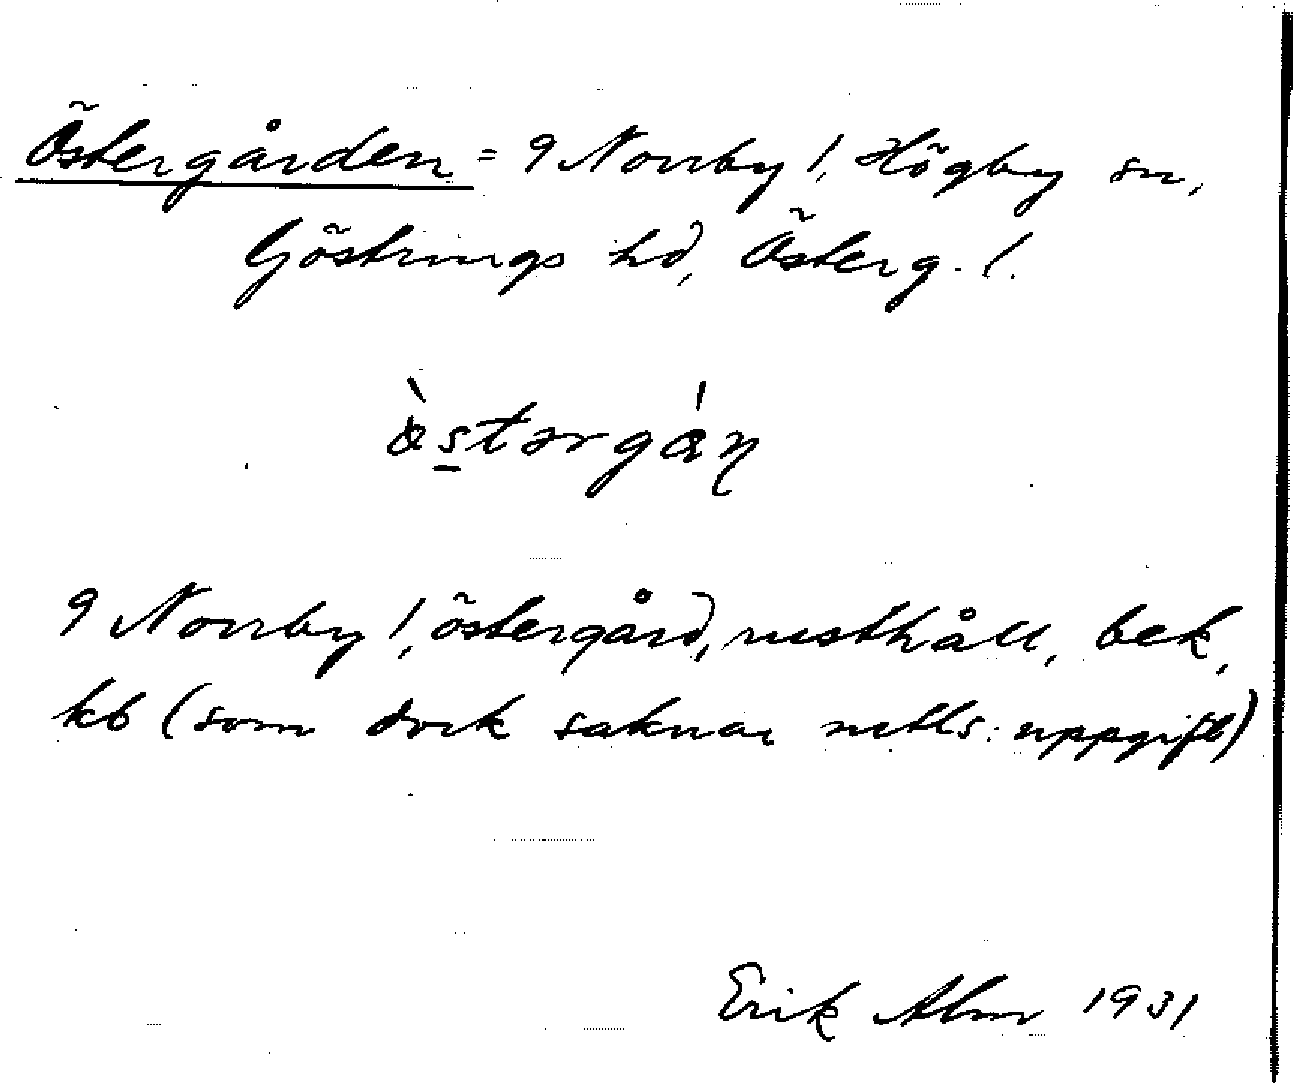 Östergården = 9 Norrby 1, Högby sn,
Göstrings hd, Österg. l.
9 Norrby 1, östergård, rusthåll, bek,
kb (som dock saknar uppgift)
Erik Alm 1931